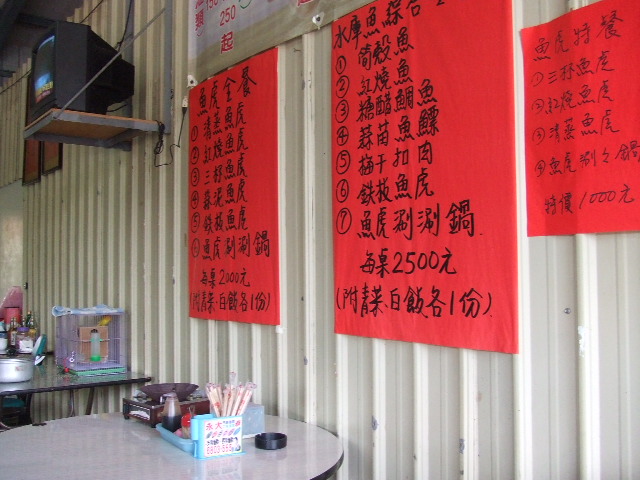 150
250
起
魚虎全餐
① 清蒸魚虎
② 紅燒魚虎
③ 三杯魚虎
④ 蒜泥魚虎
⑤ 鉄板魚虎
⑥ 魚虎涮涮鍋
每桌2000元
(附青菜.白飯各1份)
水庫魚綜合
① 筍殼魚
② 紅燒魚
③ 糖醋鯛魚
④ 蒜苗魚鰾
⑤ 梅干扣肉
⑥ 鉄板魚虎
⑦ 魚虎涮涮鍋
每桌2500元
(附青菜.白飯各1份)
魚虎特餐
① 三杯魚虎
② 紅燒魚虎
③ 清蒸魚虎
④ 魚虎涮々鍋
特價1000元
永大